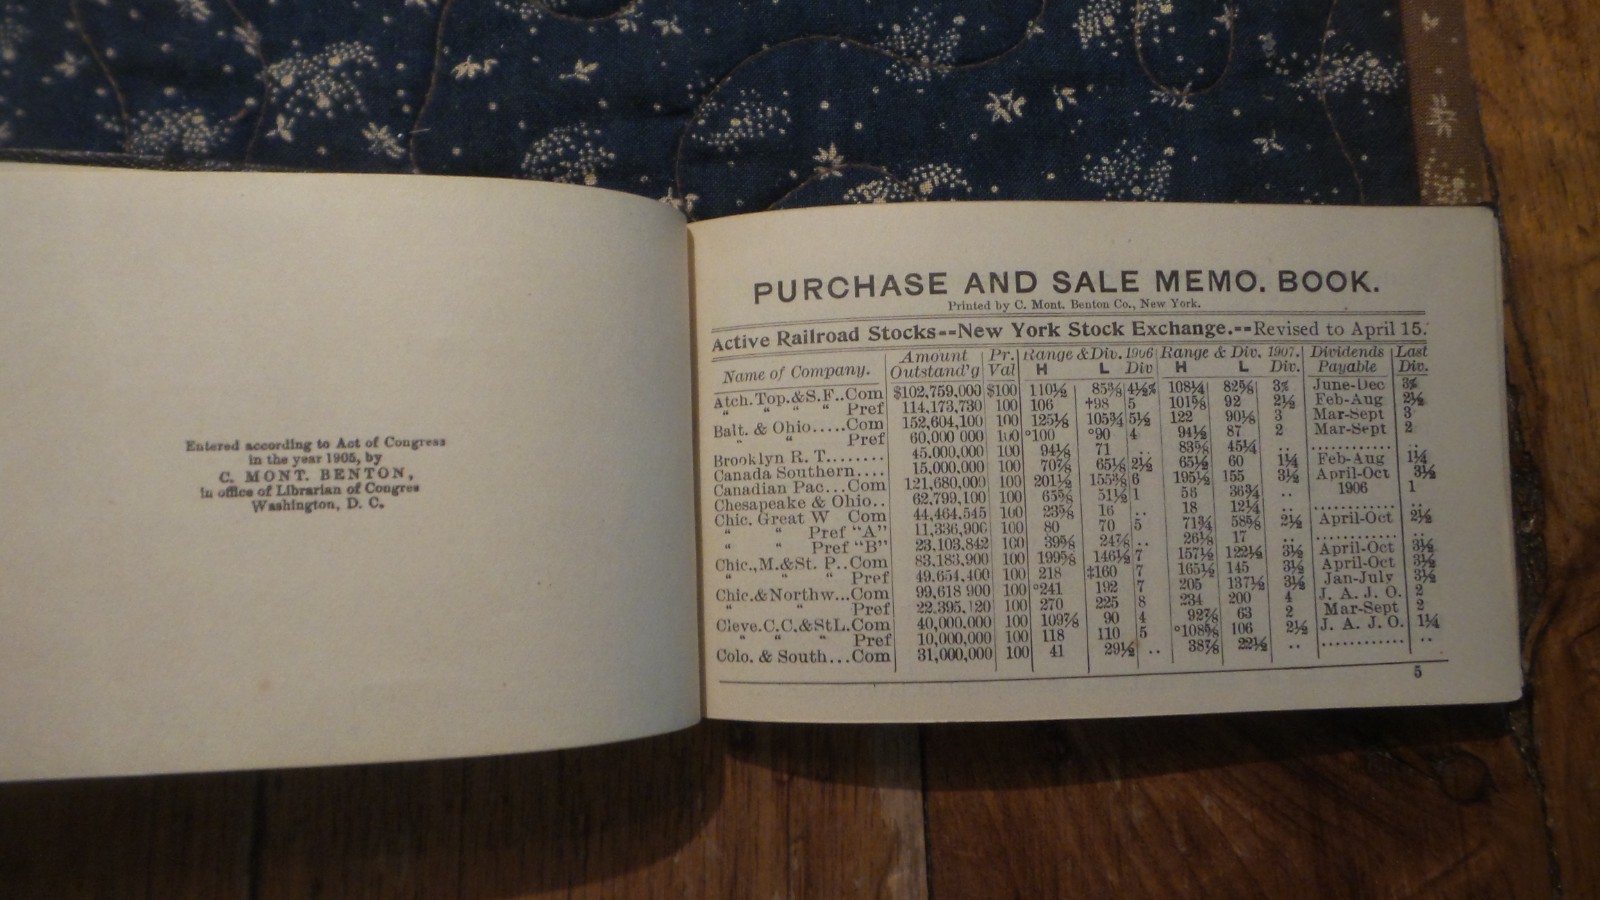 Entered according to Act of Congress
in the year 1905, by
C. MONT. BENTON,
in office of Librarian of Congres
Washington, D. C.
PURCHASE AND SALE MEMO. BOOK.
Printed by C. Mont. Benton Co., New York.
Active Railroad Stocks--New York Stock Exchange.--Revised to April 15.
Name of Company. Amount Outstand'g Pr. Val Range & Div. 1906 H L Div Range & Div. 1907. H L Div. Dividends Payable Last Div.
Atch. Top. & S. F.. Com $102,759,000 $100 110½ 85⅜ 4½% 108¼ 82⅝ 3% June-Dec 3%
" " " " Pref 114,173,730 100 106 †98 5 101⅝ 92 2½ Feb-Aug 2½
Balt. & Ohio.....Com 152,604,100 100 125⅛ 105¾ 5½ 122 90⅛ 3 Mar-Sept 3
" " Pref 60,000 000 100 °100 °90 4 94½ 87 2 Mar-Sept 2
Brooklyn R. T........ 45,000,000 100 94¼ 71 .. 83⅝ 45¼ .. ............ ..
Canada Southern.... 15,000,000 100 70⅞ 65⅛ 2½ 65½ 60 1¼ Feb-Aug 1¼
Canadian Pac...Com 121,680,000 100 201½ 155⅜ 6 195½ 155 3½ April-Oct 3½
Chesapeake & Ohio.. 62,799,100 100 65⅝ 51½ 1 56 36¾ .. 1906 1
Chic. Great W Com 44,464,545 100 23⅝ 16 .. 18 12¼ ............ ..
" " Pref "A" 11,336,900 100 80 70 5 71¾ 58⅝ 2½ April-Oct 2½
" " Pref "B" 23,103,842 100 39⅝ 24⅞ .. 26⅛ 17 .. ............ ..
Chic., M.& St. P.. Com 83,183,900 100 199⅝ 146½ 7 157½ 122⅛ 3½ April-Oct 3½
" " " Pref 49,654,400 100 218 ‡160 7 165½ 145 3½ April-Oct 3½
Chic. & Northw...Com 99,618 900 100 °241 192 7 205 137½ 3½ Jan-July 3½
" " Pref 22,395,120 100 270 225 8 234 200 4 J. A. J. O. 2
Cleve. C. C. & StL. Com 40,000,000 100 109⅞ 90 4 92⅞ 63 2 Mar-Sept 2
" " " Pref 10,000,000 100 118 110 5 °108⅝ 106 2½ J. A. J. O. 1¼
Colo. & South...Com 31,000,000 100 41 29½ .. 38⅞ 22½ .. ............ ..
5